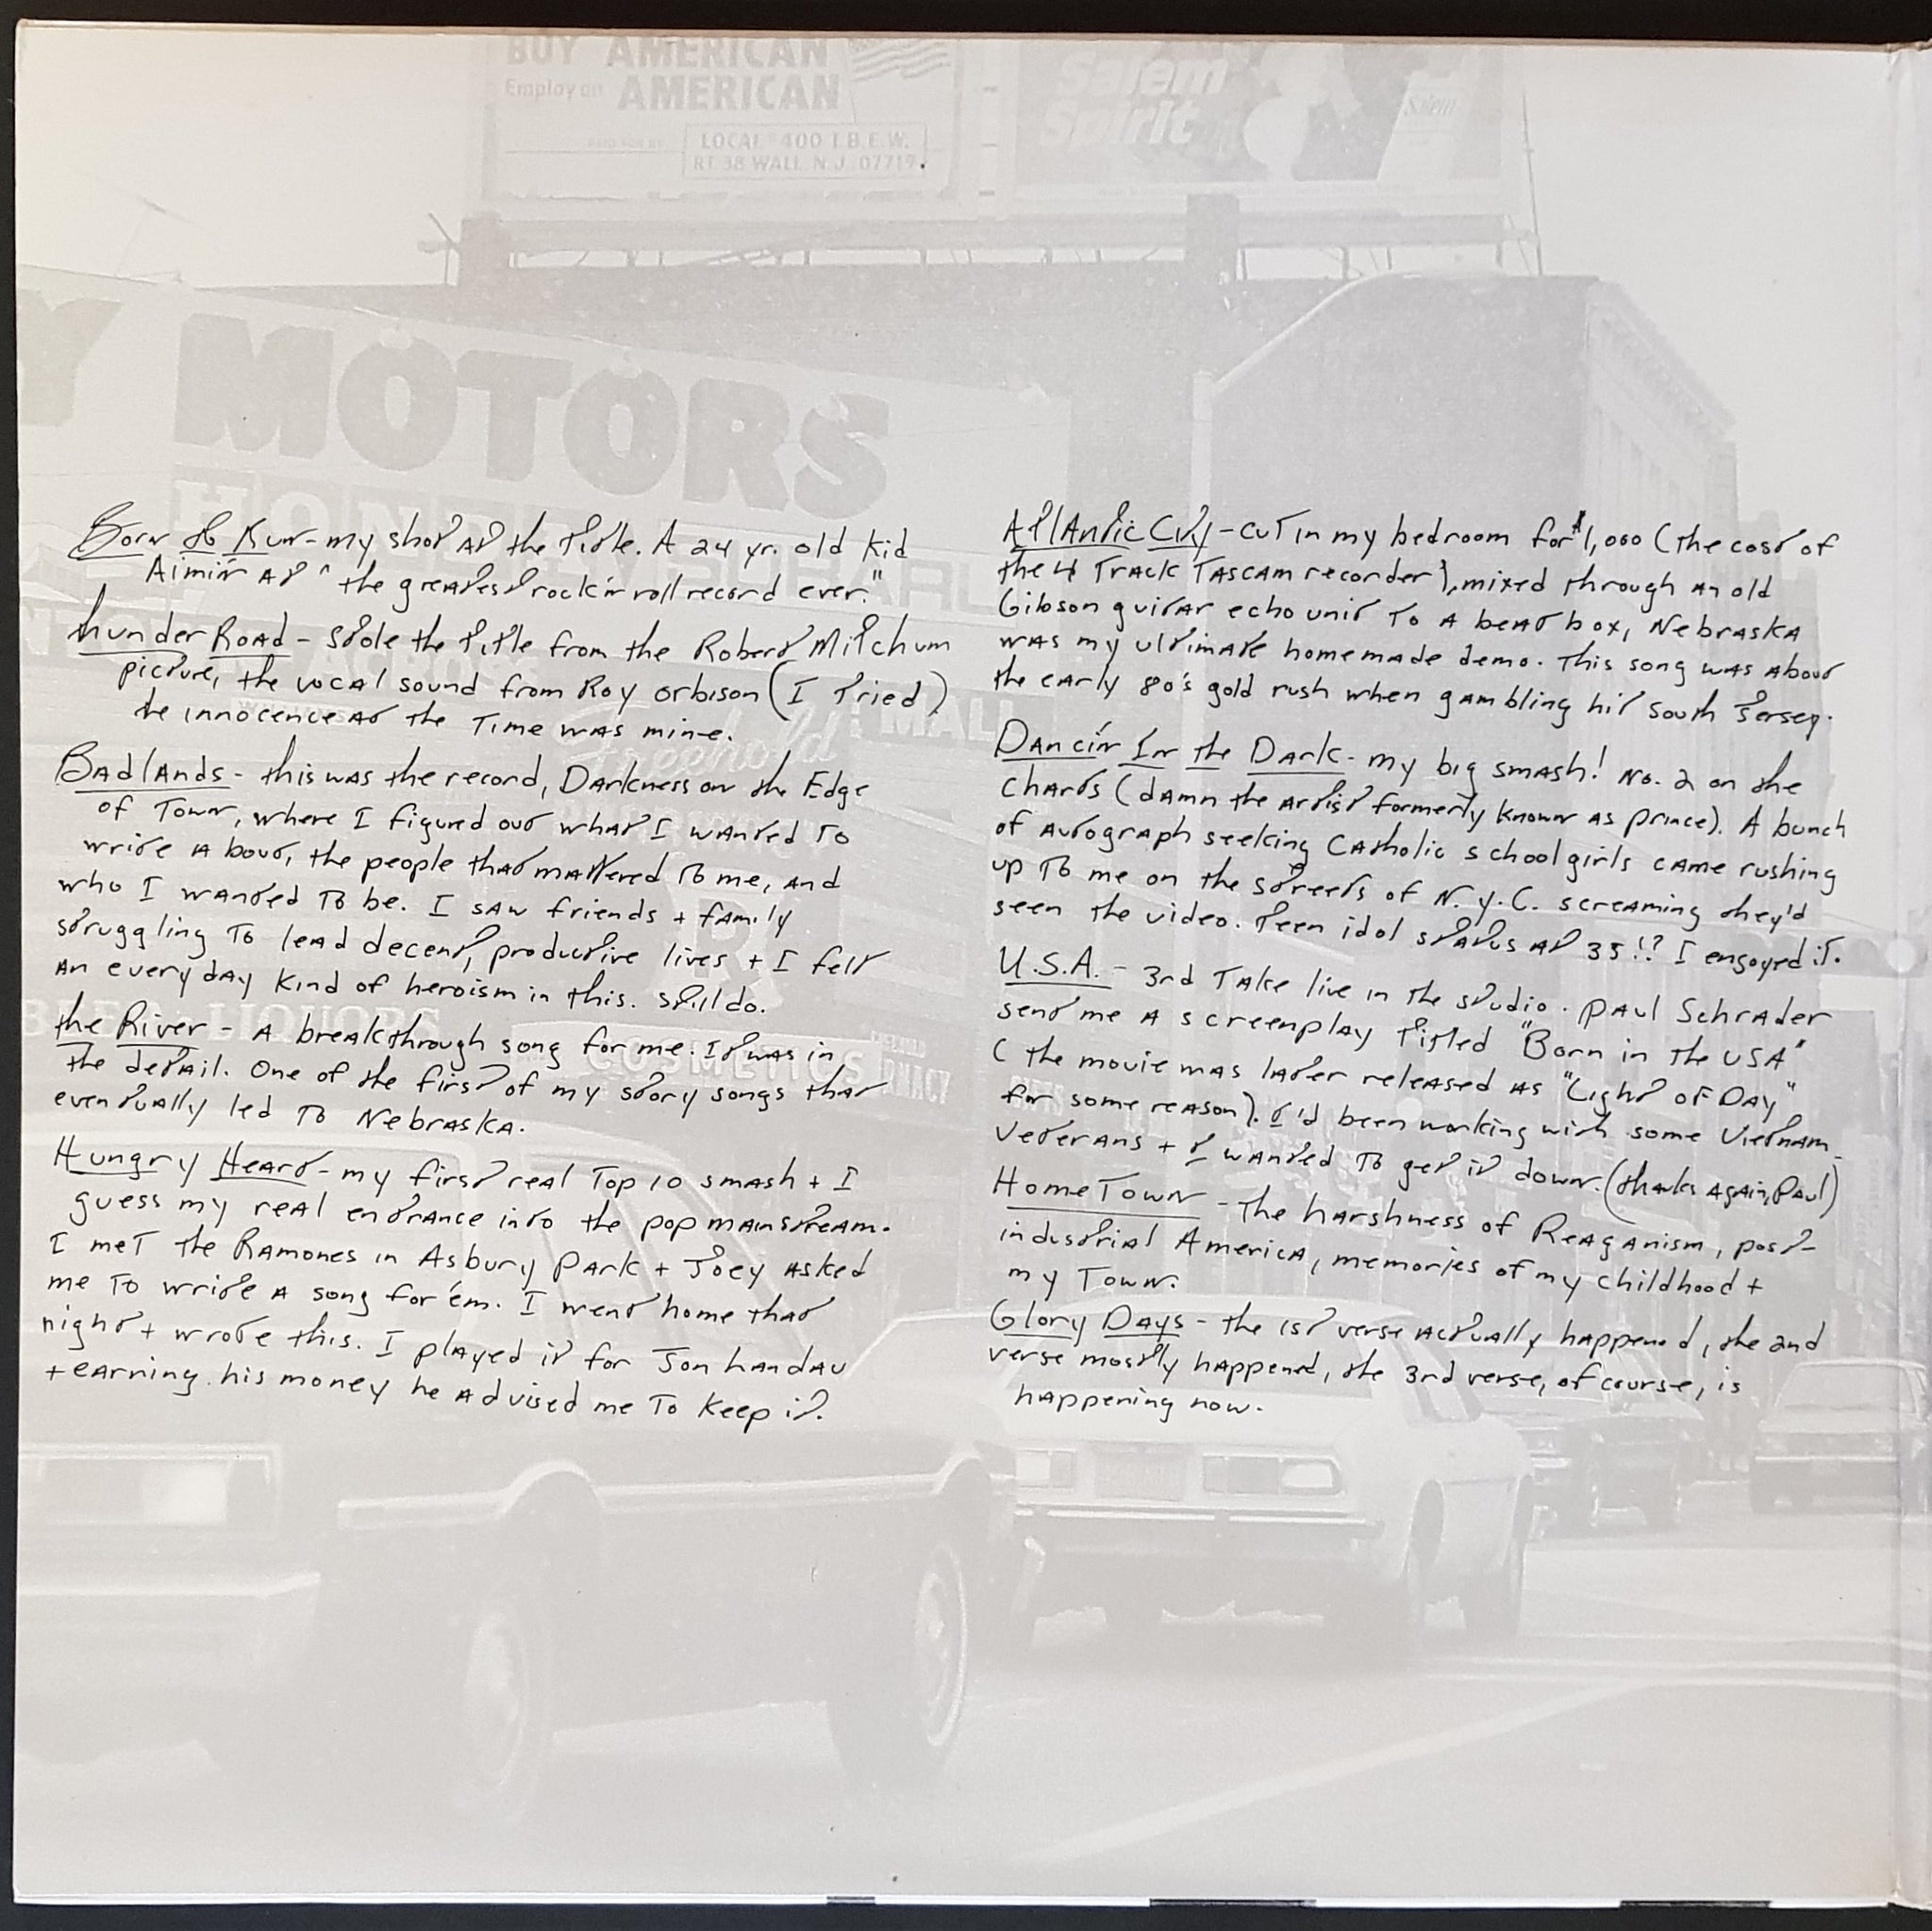 BUY AMERICAN
Employ an AMERICAN
PAID FOR BY
LOCAL 400 I.B.E.W.
RT. 38 WALL N.J. 07719
Salem
Spirit
Salem
Y MOTORS
Freehold
MALL
LIQUORS
COSMETICS
Born to Run - my shot at the title. A 24 yr. old kid
Aimin' at "the greatest rock'n roll record ever."
thunder Road - stole the title from the Robert Mitchum
picture, the vocal sound from Roy Orbison (I tried)
the innocence at the time was mine.
Badlands - this was the record, Darkness on the Edge
of Town, where I figured out what I wanted to
write about, the people that mattered to me, and
who I wanted to be. I saw friends + family
struggling to lead decent, productive lives + I felt
an every day kind of heroism in this. still do.
the River - A breakthrough song for me. It was in
the detail. One of the first of my story songs that
eventually led to Nebraska.
Hungry Heart - my first real Top 10 smash + I
guess my real entrance into the pop mainstream.
I met the Ramones in Asbury Park + Joey asked
me to write a song for 'em. I went home that
night + wrote this. I played it for Jon Landau
+ earning his money he advised me to keep it.
Atlantic City - cut in my bedroom for $1,000 (the cost of
the 4 Track Tascam recorder), mixed through an old
Gibson guitar echo unit to a beat box, Nebraska
was my ultimate homemade demo. This song was about
the early 80's gold rush when gambling hit South Jersey.
Dancin' In the Dark - my big smash! No. 2 on the
charts (damn the artist formerly known as prince). A bunch
of autograph seeking Catholic school girls came rushing
up to me on the streets of N.Y.C. screaming they'd
seen the video. Teen idol status at 35!? I engoyed it.
U.S.A. - 3rd Take live in the studio. Paul Schrader
sent me a screenplay titled "Born in the USA"
(the movie was later released as "Light of Day"
for some reason). I'd been working with some Vietnam
Veterans + I wanted to get it down. (thanks again, Paul)
HomeTown - The harshness of Reaganism, post-
industrial America, memories of my childhood +
my Town.
Glory Days - the 1st verse actually happened, the 2nd
verse mostly happened, the 3rd verse, of course, is
happening now.